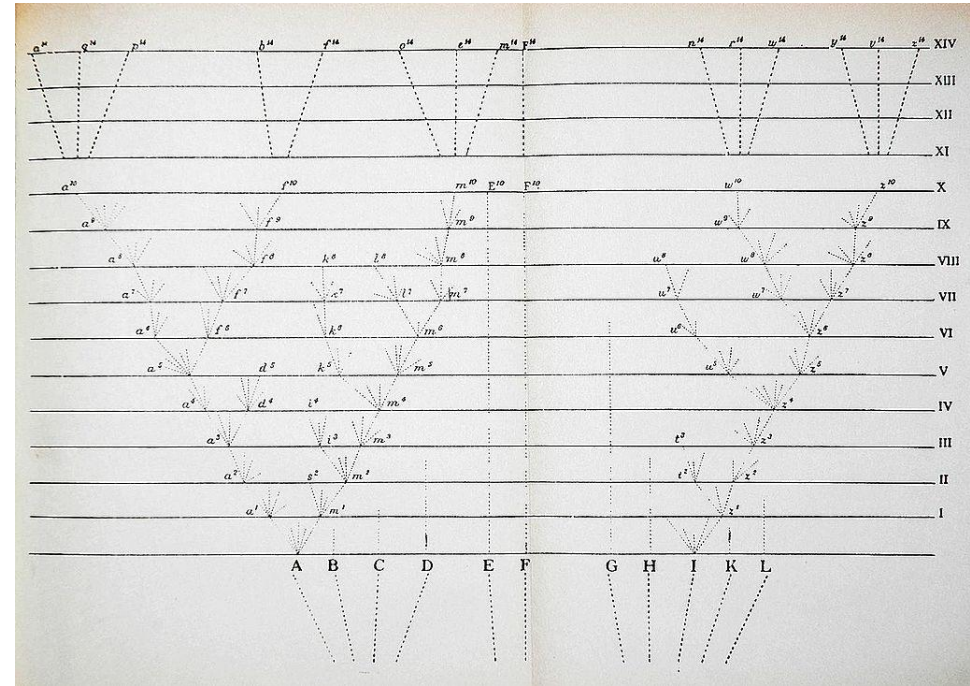 a¹⁴ q¹⁴ p¹⁴ b¹⁴ f¹⁴ o¹⁴ e¹⁴ m¹⁴ F¹⁴ n¹⁴ r¹⁴ w¹⁴ y¹⁴ v¹⁴ z¹⁴ XIV
XIII
XII
XI
a¹⁰ f¹⁰ m¹⁰ E¹⁰ F¹⁰ w¹⁰ z¹⁰ X
a⁹ f⁹ m⁹ w⁹ z⁹ IX
a⁸ f⁸ k⁸ l⁸ m⁸ u⁸ w⁸ z⁸ VIII
a⁷ f⁷ k⁷ l⁷ m⁷ u⁷ w⁷ z⁷ VII
a⁶ f⁶ k⁶ m⁶ u⁶ z⁶ VI
a⁵ d⁵ k⁵ m⁵ u⁵ z⁵ V
d⁴ i⁴ z⁴ IV
a³ i³ m³ t³ z³ III
a² s² m² t² z² II
a¹ m¹ z¹ I
A B C D E F G H I K L